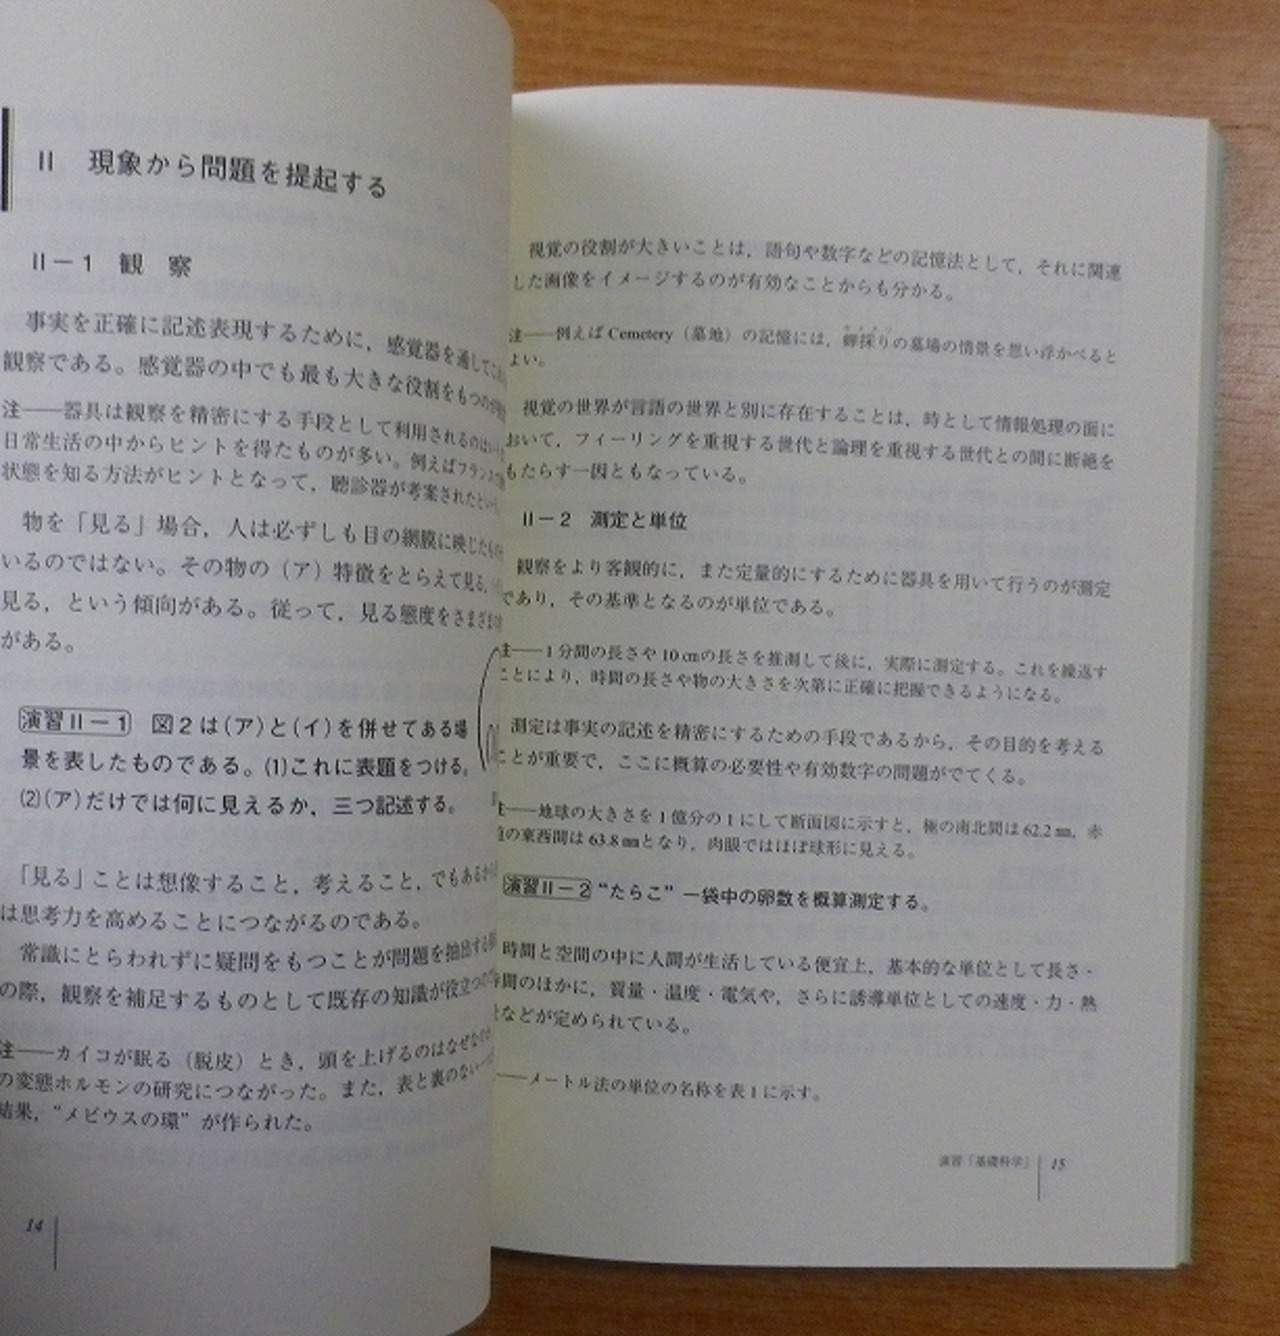 II 現象から問題を提起する
II－1 観 察
事実を正確に記述表現するために，感覚器を通して
観察である。感覚器の中でも最も大きな役割をもつのが
注――器具は観察を精密にする手段として利用されるのは
日常生活の中からヒントを得たものが多い。例えばフランス
状態を知る方法がヒントとなって，聴診器が考案されたという
物を「見る」場合，人は必ずしも目の網膜に映じたもの
いるのではない。その物の（ア）特徴をとらえて見る，
見る，という傾向がある。従って，見る態度をさまざま
がある。
演習II－1 図2は(ア)と(イ)を併せてある場
景を表したものである。(1)これに表題をつける。
(2)(ア)だけでは何に見えるか，三つ記述する。
「見る」ことは想像すること，考えること，でもあるから
は思考力を高めることにつながるのである。
常識にとらわれずに疑問をもつことが問題を抽出する
の際，観察を補足するものとして既存の知識が役立つ
注――カイコが眠る（脱皮）とき，頭を上げるのはなぜなのか
の変態ホルモンの研究につながった。また，表と裏のない
結果，“メビウスの環”が作られた。
14
視覚の役割が大きいことは，語句や数字などの記憶法として，それに関連
した画像をイメージするのが有効なことからも分かる。
注――例えば Cemetery（墓地）の記憶には，蝉採りの墓場の情景を思い浮かべると
よい。
視覚の世界が言語の世界と別に存在することは，時として情報処理の面に
おいて，フィーリングを重視する世代と論理を重視する世代との間に断絶を
もたらす一因ともなっている。
II－2 測定と単位
観察をより客観的に，また定量的にするために器具を用いて行うのが測定
であり，その基準となるのが単位である。
注――1分間の長さや10㎝の長さを推測して後に，実際に測定する。これを繰返す
ことにより，時間の長さや物の大きさを次第に正確に把握できるようになる。
測定は事実の記述を精密にするための手段であるから，その目的を考える
ことが重要で，ここに概算の必要性や有効数字の問題がでてくる。
注――地球の大きさを1億分の1にして断面図に示すと，極の南北間は62.2㎜，赤
道の東西間は63.8㎜となり，肉眼ではほぼ球形に見える。
演習II－2 “たらこ”一袋中の卵数を概算測定する。
時間と空間の中に人間が生活している便宜上，基本的な単位として長さ・
時間のほかに，質量・温度・電気や，さらに誘導単位としての速度・力・熱
などが定められている。
――メートル法の単位の名称を表1に示す。
演習「基礎科学」 15